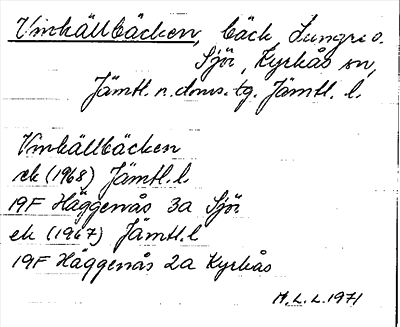 Vinkällbäcken, bäck Lungre o.
Sjör, Kyrkås sn,
Jämtl. n. doms. tg. Jämtl. l.
Vinkällbäcken
ek (1968) Jämtl. l.
19F Häggenås 3a Sjör
ek (1967) Jämtl. l
19F Häggenås 2a Kyrkås
M. L. L. 1971